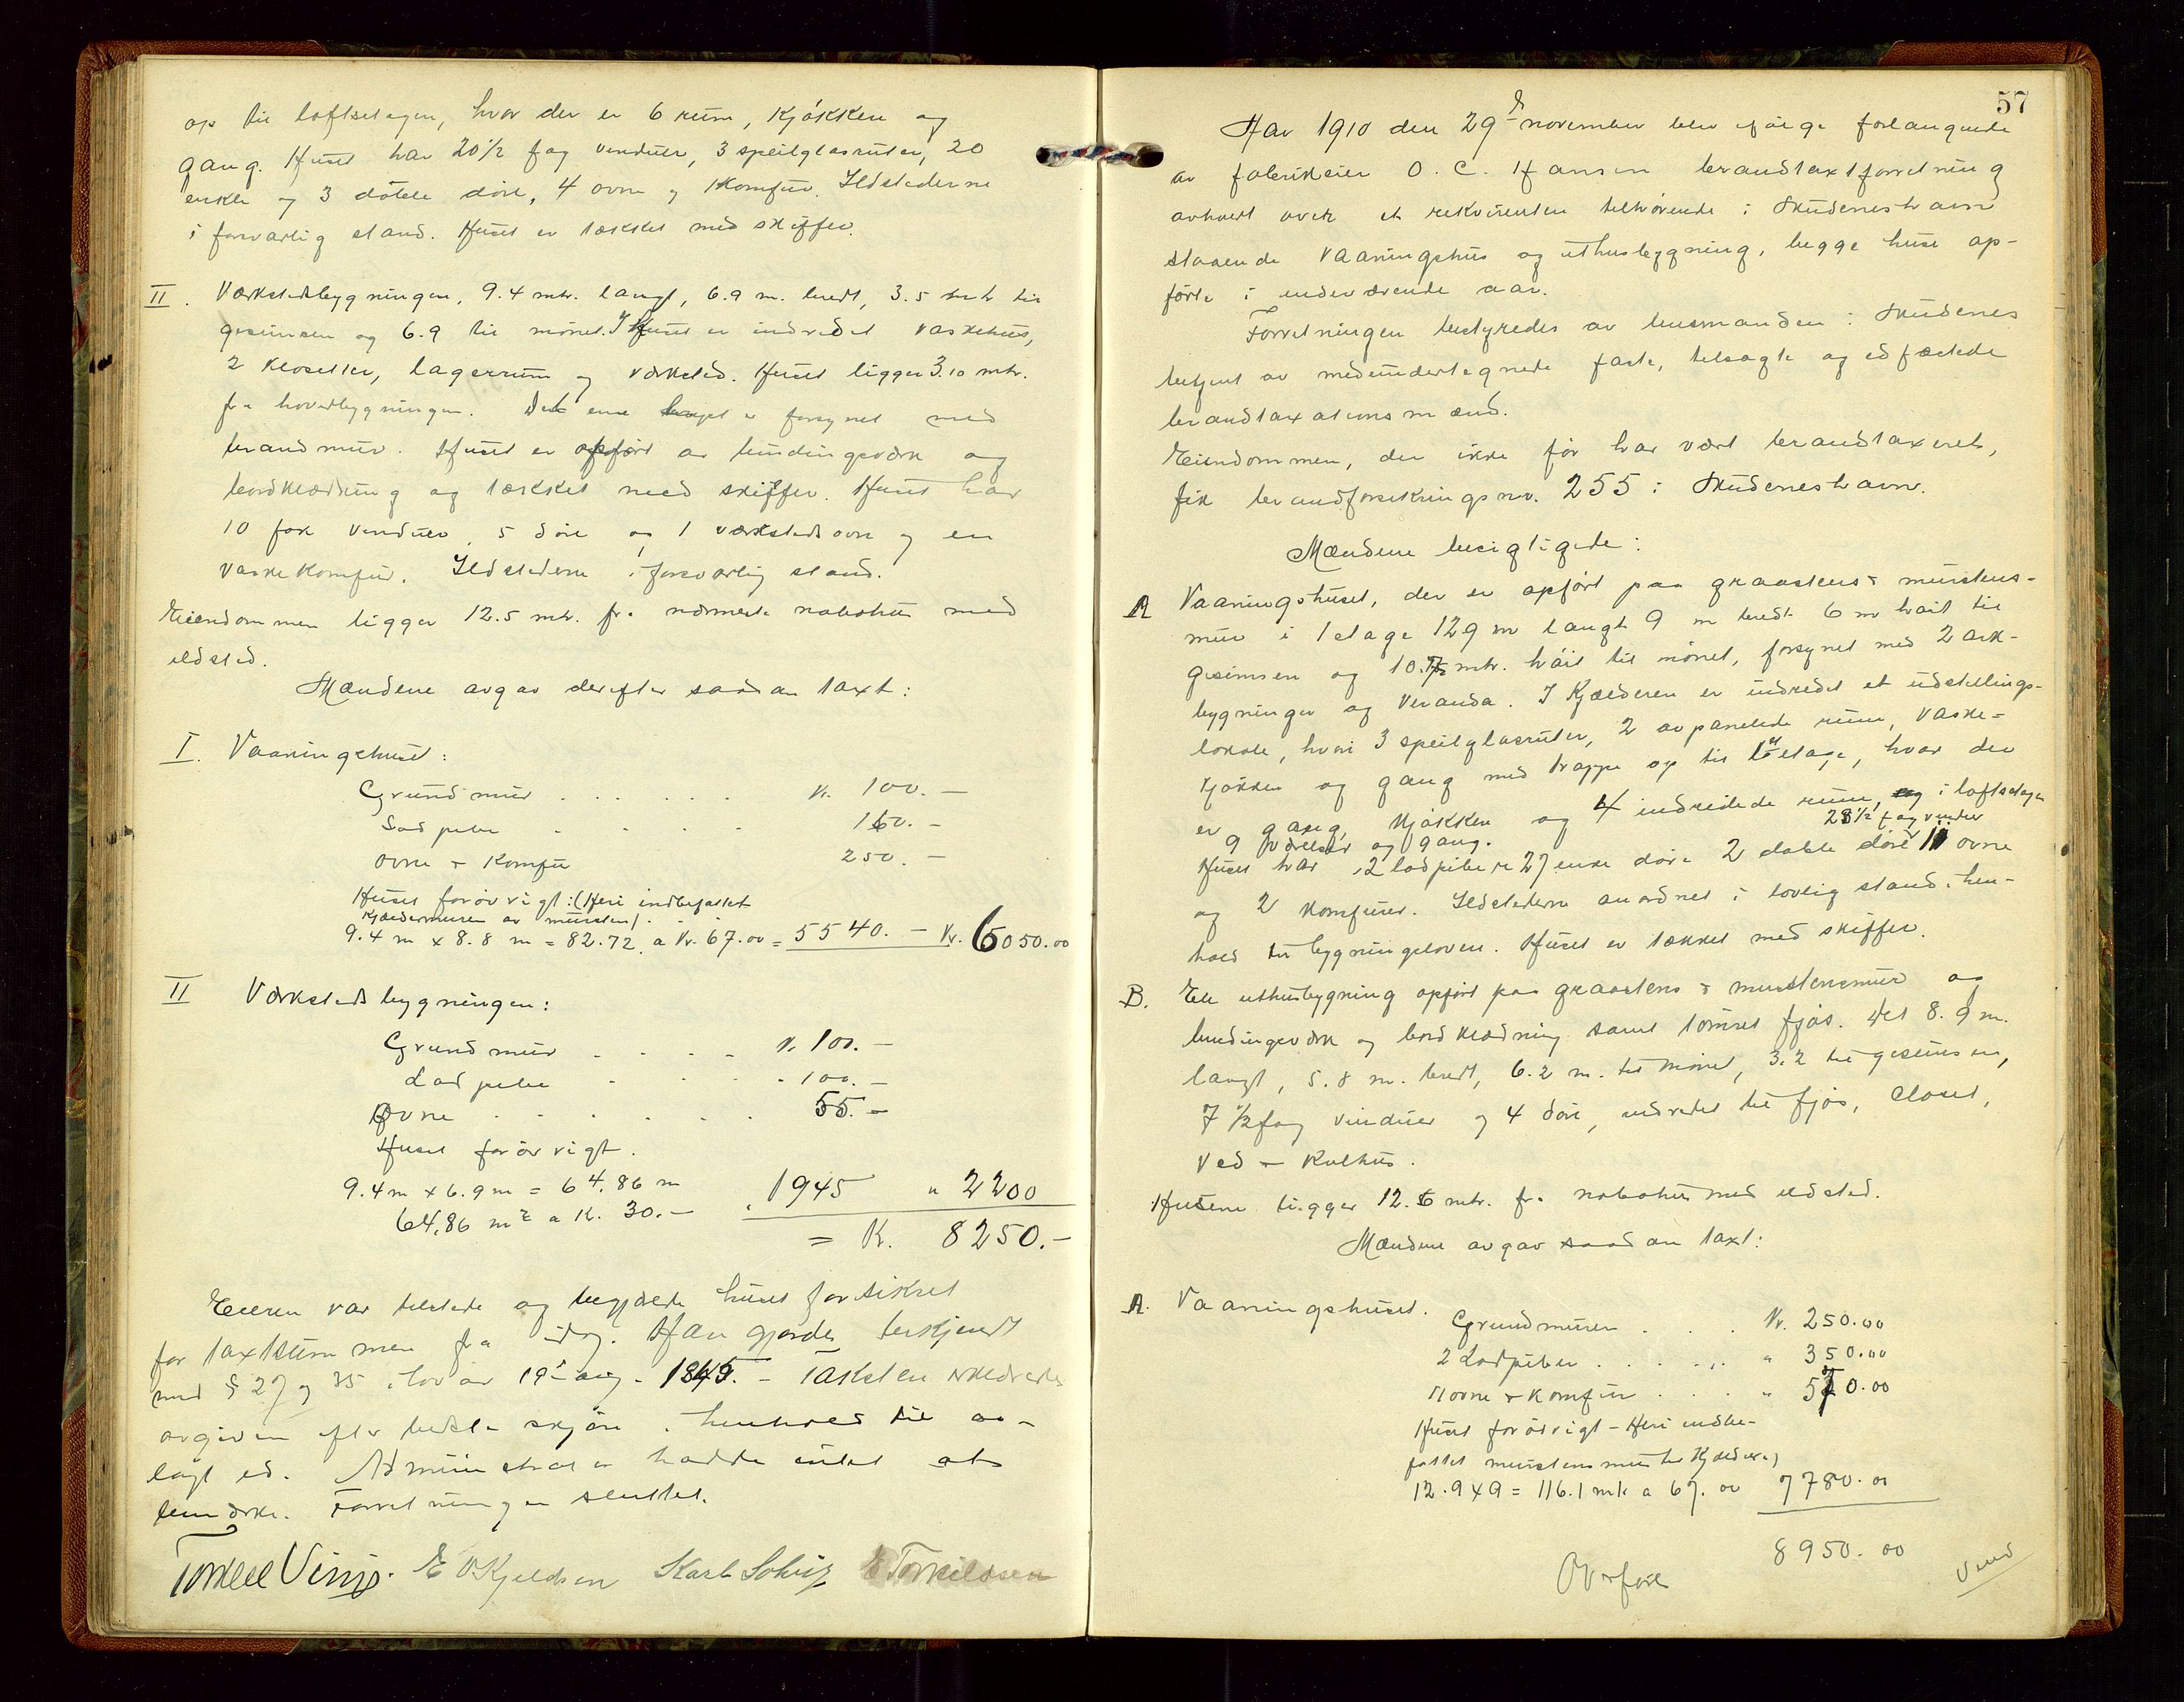 op til loftsetagen, hvor der er 6 rum, Kjøkken og
gang. Huset har 20½ fag vinduer, 3 speilglasruter, 20
enkle og 3 doble døre, 4 ovne og 1 Komfur. Ildstederne
i forsvarlig stand. Huset er tækket med skiffer.
II. Værkstedbygningen, 9.4 mtr. langt, 6.9 m. bredt, 3.5 mtr til
gesimsen og 6.9 til mønet. I Huset er indredet vaskehus,
2 Klosetter, lagerrum og værksted. Huset ligger 3.10 mtr.
fra hovedbygningen. Dets ene er forsynet med
brandmur. Huset er opført av bindingsverk og
bordklædning og tækket med skiffer. Huset har
10 fak vinduer, 5 døre og 1 værkstedsovn og en
vaskekomfur. Ildstederne i forsvarlig stand.
Eiendommen ligger 12.5 mtr. fra nærmeste nabohus med
ildsted.
Mændene avgav derefter saadan taxt:
I. Vaaningshuset:
Grundmur . . . . . Kr. 100.—
Lodpibe . . . . 160.—
Ovne + Komfur 250.—
Huset forøvrigt: (Heri indbefattet
Kjældermuren av mursten) . . .
9.4 m x 8.8 m = 82.72. a Kr. 67.00 = 5540. — Kr. 6050.00
II Værkstedsbygningen:
Grundmur . . . . Kr. 100.—
Lodpibe . . . . 100.—
Ovne . . . . . . 55.—
Huset forøvrigt.
9.4 m x 6.9 m = 64.86 m
64,86 m² a K. 30.— . 1945 " 2200
= K. 8250.—
Eieren var tilstede og begjærte huset forsikret
for taxtsummen fra idag. Han gjordes bekjendt
med § 27 og 35 i lov av 19de aug. 1845. — Taksten erklæredes
avgiven efter bedste skjøn i henhold til av-
lagt ed. Administrator hadde intet at
bemærke. Forretningen sluttet.
Torkel Vinje. E O Kjeldsen Karl Schiiz E Torkildsen
57
Aar 1910 den 29de november blev ifølge forlangende
av fabrikeier O. C. Hansen brandtaxtforretning
avholdt over et rekvirenten tilhørende i Skudeneshavn
staaende Vaaningshus og uthusbygning, begge huse op-
førte i indeværende aar.
Forretningen bestyredes av lensmanden i Skudenes
betjent av medundertegnede faste, tilsagte og edfæstede
brandtaxationsmænd.
Eiendommen, der ikke før har vært brandtaxeret,
fik brandforsikringsnr. 255 i Skudeneshavn.
Mændene besigtigede:
A Vaaningshuset, der er opført paa graastens & murstens-
mur i 1 etage 12 9 m langt 9 m bredt 6 m høit til
gesimsen og 10.75 mtr. høit til mønet, forsynet med 2 ark-
bygninger og Veranda. I Kjælderen er indredet et udstillings-
lokale, hvori 3 speilglasruter, 2 avpanelede rum, vaske-
kjøkken og gang med trappe op til 1ste etage, hvor der
er gang, Kjøkken og 4 indredede rum, og i loftsetagen
9 værelser og gang. 28½ fag vinduer
Huset har 2 lodpiber 27 enke døre 2 doble døre 11 ovne
og 2 Komfurer. Ildstederne anordnet i lovlig stand i hen-
hold til bygningsloven. Huset er tækket med skiffer.
B. Ett uthusbygning opført paa graastens & murstensmur og
bindingsværk og bordklædning samt tømret fjøs. Det 8.9 m.
langt, 5.8 m. bredt, 6.2 m. til mønet, 3.2 til gesimsen,
7 ½ fag vinduer og 4 døre, indredet til fjøs, Closet,
Ved- & Kulhus.
Husene ligger 12.5 mtr. fra nabohus med ildsted.
Mændene avgav saadan taxt:
A. Vaaningshuset.
Grundmuren . . . Kr. 250.00
2 Lodpiber . . . . . " 350.00
11 ovne & Komfur . . . " 570.00
Huset forøvrigt — Heri indbe-
fattet murstensmur til Kjælderen)
12.9 x 9 = 116.1 mtr a 67.00 7780.00
8950.00
Overføres
Vend